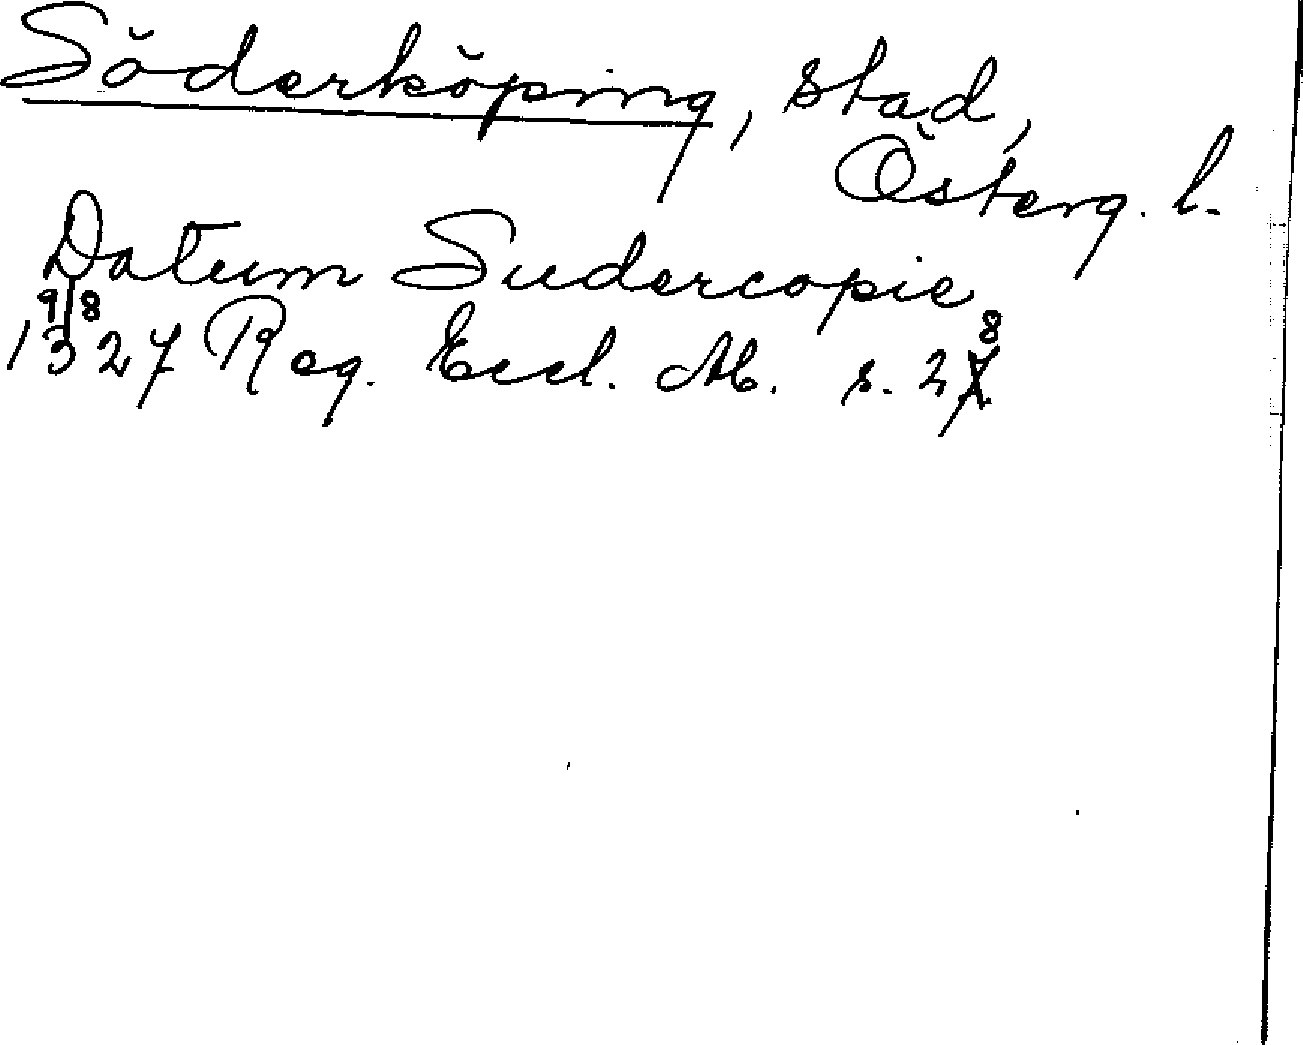 Söderköping, stad,
Österg. l.
Datum Sudercopie
9/8
1327 Reg. Eccl. Ab. s. 28